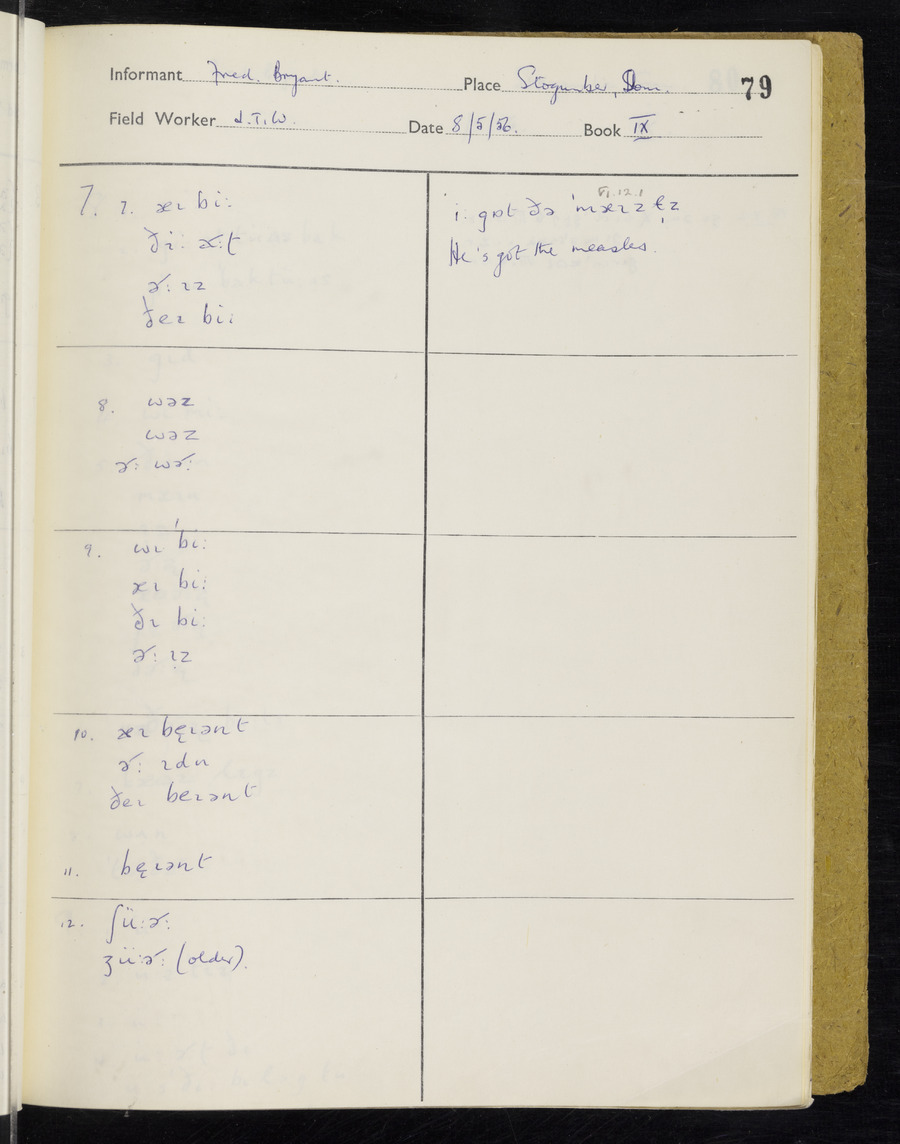 Informant Fred. Bryant.
Place Stogumber, Som. 79
Field Worker J.T.W.
Date 8/5/56. Book IX
7. 7. æɪ bi:
ðɪ: ɚ:t
ɚ: ɪz
ðeɪ bi:
VI.12.1
i: gɒt ðə ˈmæɪzɫ̩z
He's got the measles.
8. wəz
wəz
ɚ: wɚ:
9. wɪ ˈbi:
æɪ bi:
ðɪ bi:
ɚ: ɪz
10. æɪ bęɪənt
ɚ: ɪdn
ðeɪ beɪənt
11. bęɪənt
12. ʃü:ɚ:
ʒü:ɚ: (older).